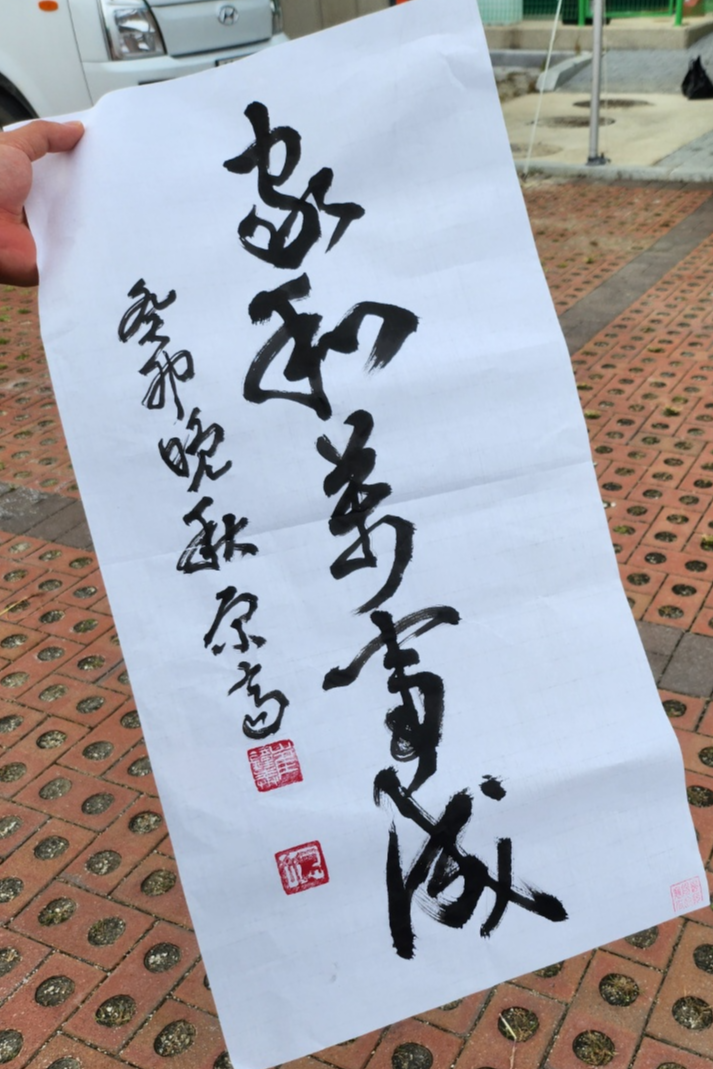 家和萬事成
癸卯晩秋原高